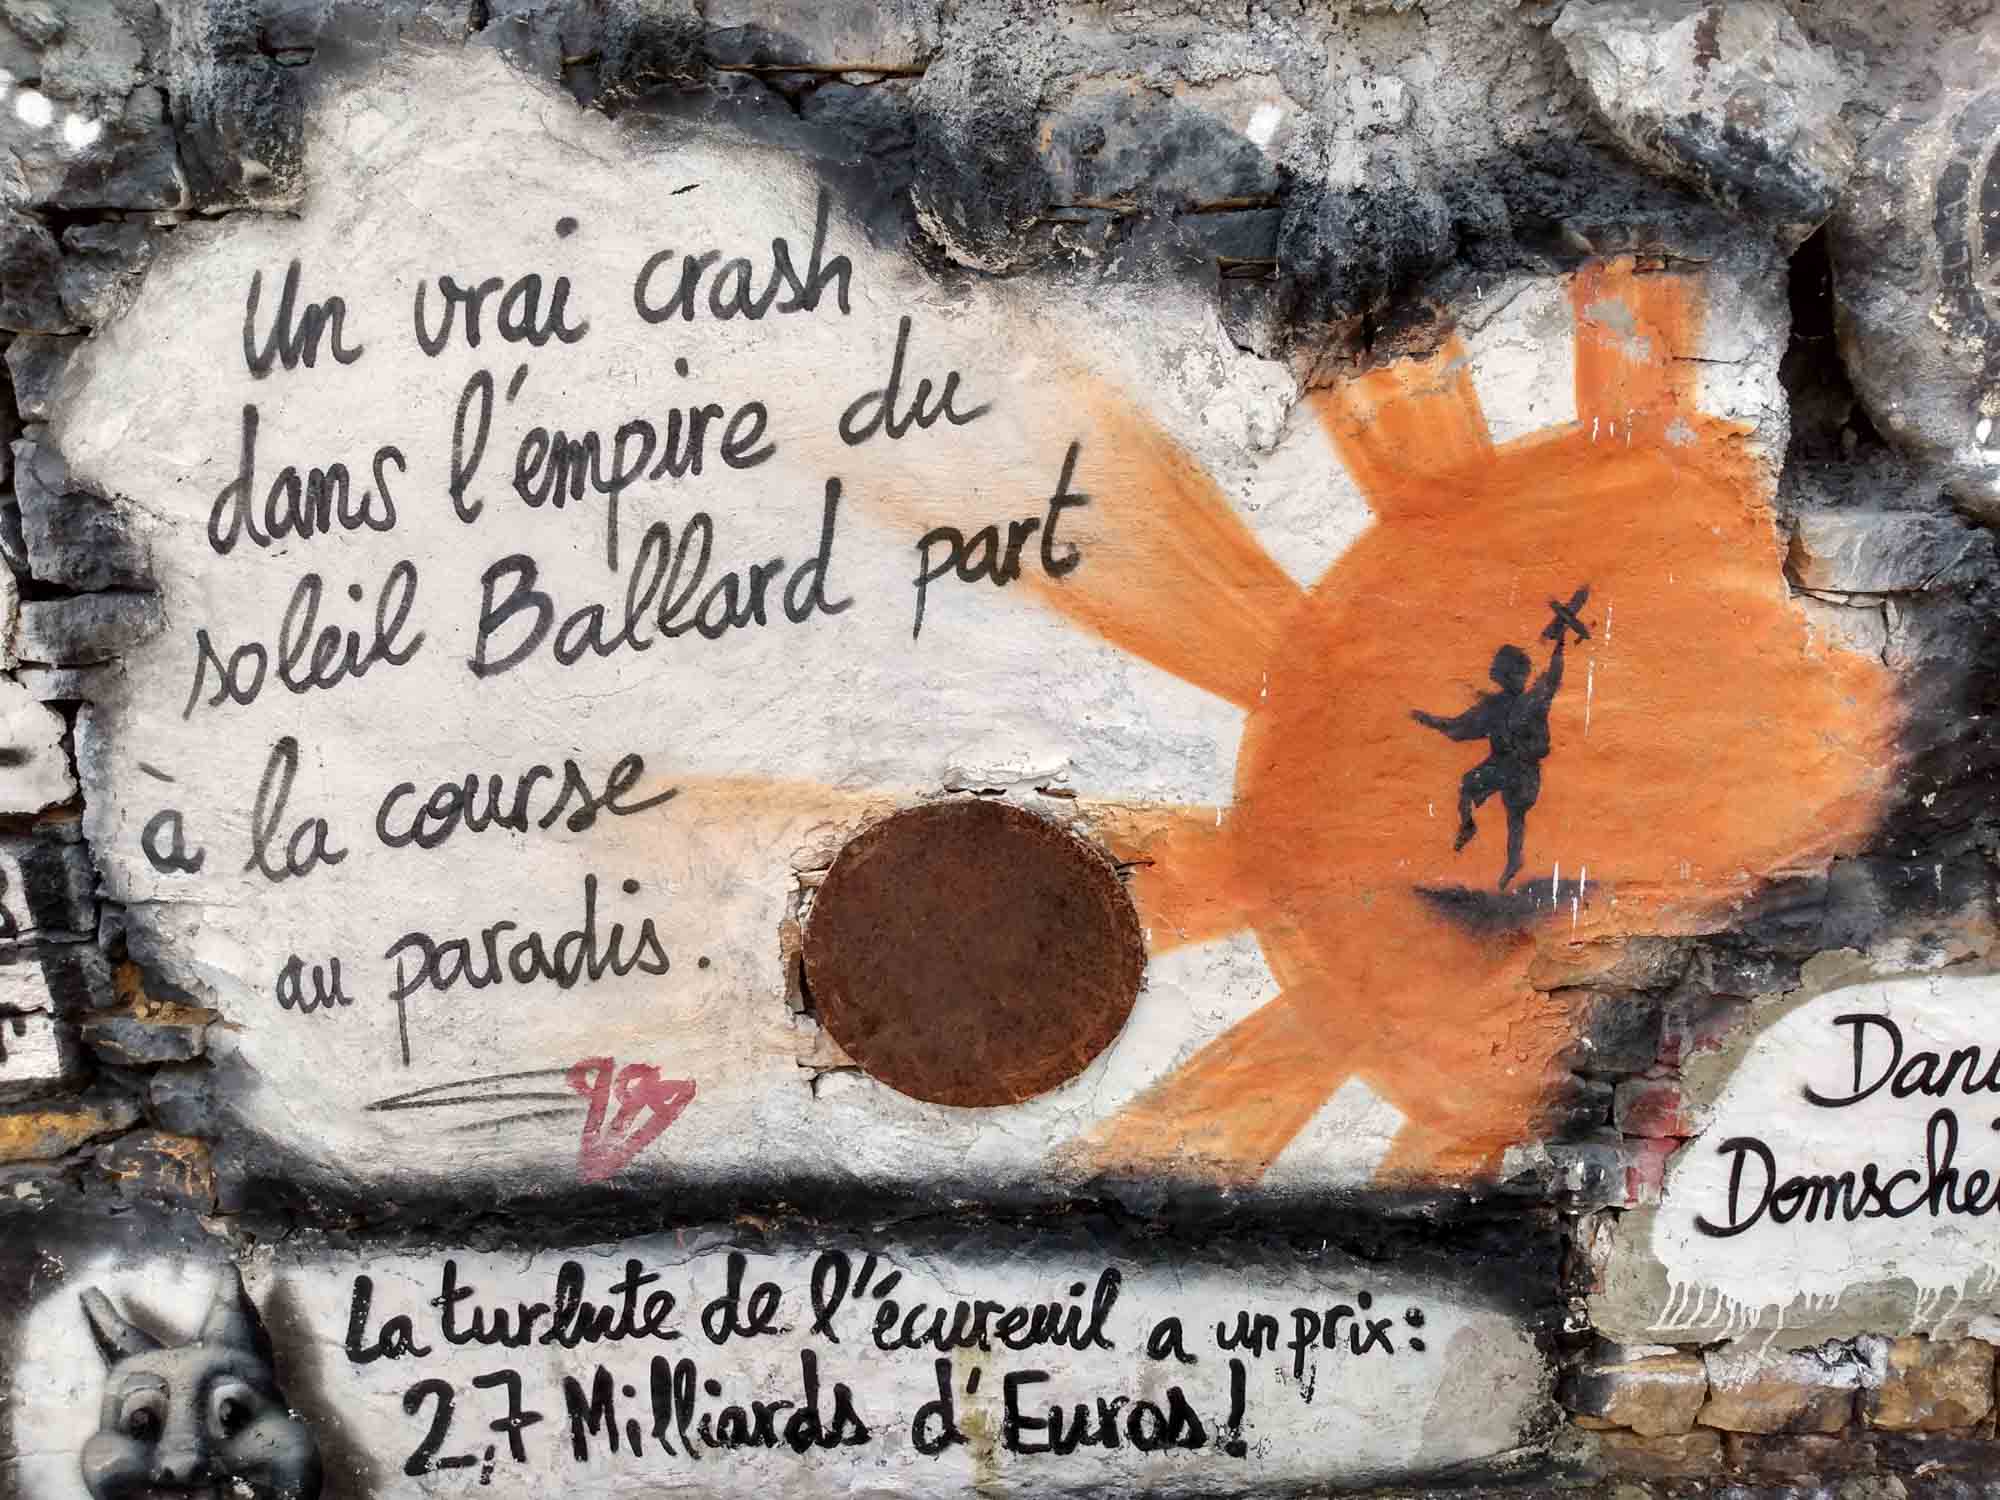 Un vrai crash
dans l'empire du
soleil Ballard part
à la course
au paradis.
Dani
Domschei
La turlute de l'écureuil a un prix:
2,7 Milliards d'Euros!